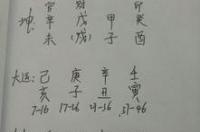 官 财 印
坤: 辛 戊 甲 癸
未 (戌) 子 酉
大运: 己 庚 辛 壬
亥 子 丑 寅
7-16 17-26 27-36 37-46